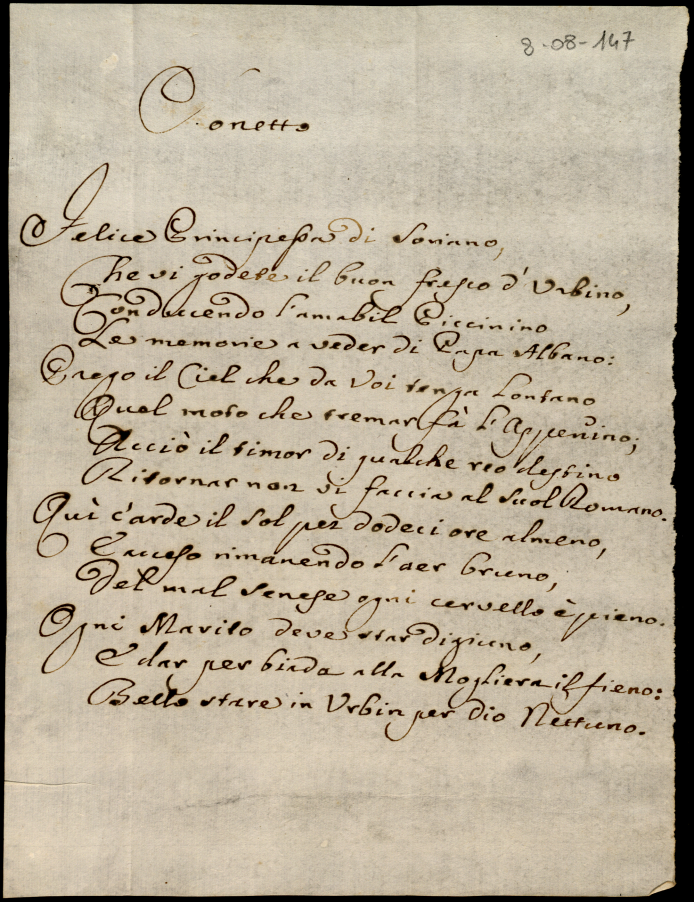 8-08-147
Sonetto
Felice Principessa di Soriano,
Che vi godete il buon fresco d'Urbino,
Conducendo l'amabil Piccinino
Le memorie a veder di Papa Albano:
Prego il Ciel che da Voi tenga lontano
Quel moto che tremar fà l'Appenino;
Acciò il timor di qualche reo destino
Ritornar non vi faccia al Suol Romano.
Quì c'arde il Sol per dodeci ore almeno,
E acceso rimanendo l'aer bruno,
Del mal Senese ogni cervello è pieno.
Ogni Marito deve star digiuno,
E dar per biada alla Mogliera il fieno:
Bello stare in Urbin per dio Nettuno.